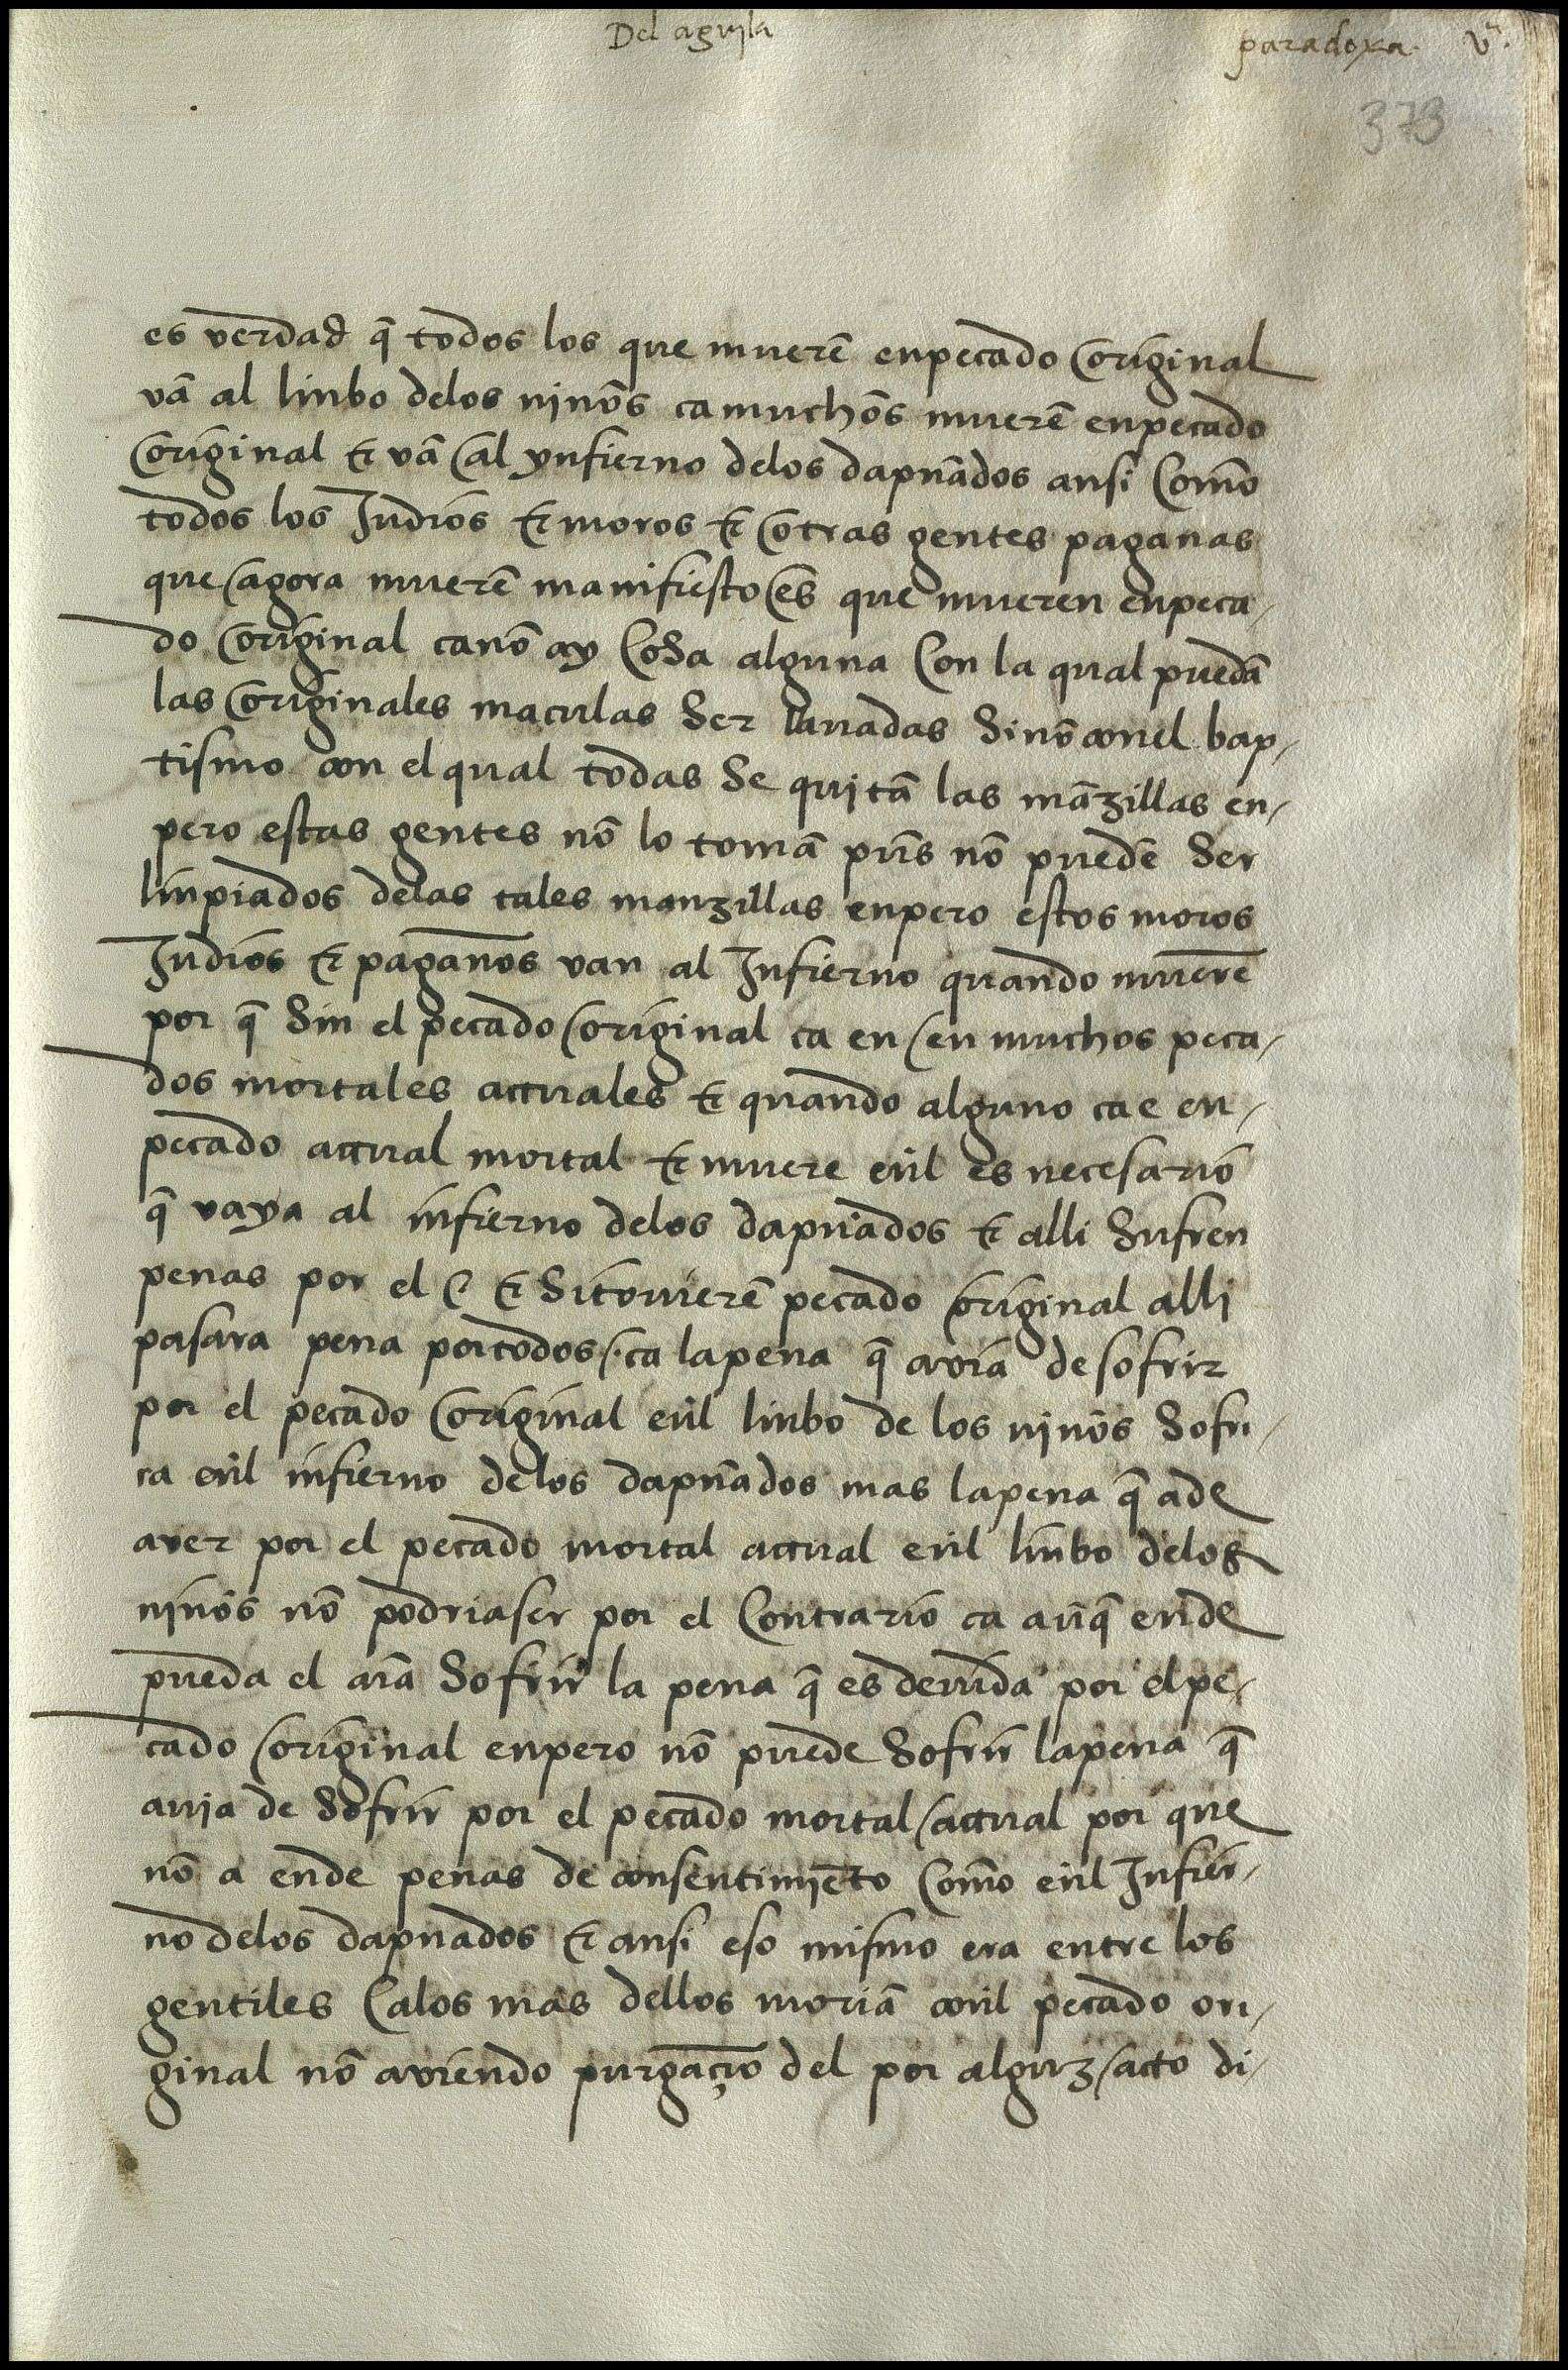 Del aguila
paradoxa. vª.
373
es verdad q̃ todos los que muerẽ enpecado original
vã al linbo delos niños ca muchõs muerẽ enpecado
original & vã al ynfierno delos dapñados ansi Comõ
todos los Judios & moros & otras gentes paganas
que agora muerẽ manifiesto es que mueren enpeca-
do original ca nõ ay Cosa alguna Con la qual puedã
las originales maculas Ser lauadas Sinõ conel bap-
tismo con el qual todas Se quitã las mãzillas en-
pero estas gentes nõ lo tomã pues nõ puedẽ Ser
linpiados delas tales manzillas enpero estos moros
Judios & paganos van al Infierno quando muerẽ
por q̃ Sin el pecado original ca en en muchos peca-
dos mortales actuales & quando alguno cae en-
pecado actual mortal & muere eñl es necesario
q̃ vaya al infierno delos dapñados & alli Sufren
penas por el & Sitouierẽ pecado original alli
pasara pena portodos. ca lapena q̃ avia de sofrir
por el pecado original eñl linbo de los niños Sofri-
ra eñl infierno delos dapñados mas lapena q̃ ade
aver por el pecado mortal actual eñl linbo delos
niños nõ podriaser por el Contrario ca aũq̃ ende
pueda el aĩa Sofrir la pena q̃ es deuida por elpe-
cado original enpero nõ puede Sofrir lapena q̃
auja de Sofrir por el pecado mortal actual por que
nõ a ende penas de consentimjẽto Comõ eñl Infier-
no delos dapnados & ansi eso mismo era entre los
gentiles Calos mas dellos moriã coñl pecado ori-
ginal nõ aviendo purgaçiõ del por alguz acto di-